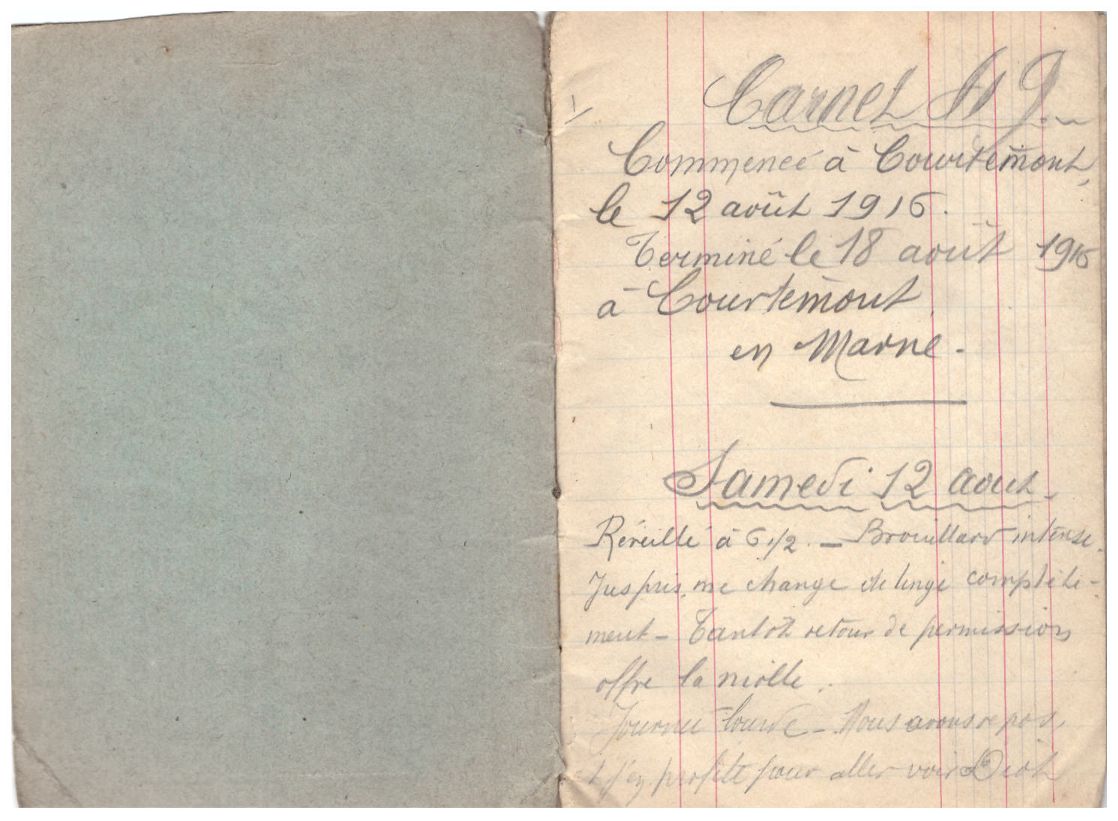 1/
Carnet N 9.
Commencé à Courtémont,
le 12 août 1916.
Terminé le 18 août 1916
à Courtémont
en Marne.
Samedi 12 aout.
Réveillé à 6 1/2. — Brouillard intense.
Jus pris, me change de linge complète-
ment — Tantôt retour de permission
offre la niolle.
Journée lourde — Nous avons repos,
et j'en profite pour aller voir Diot